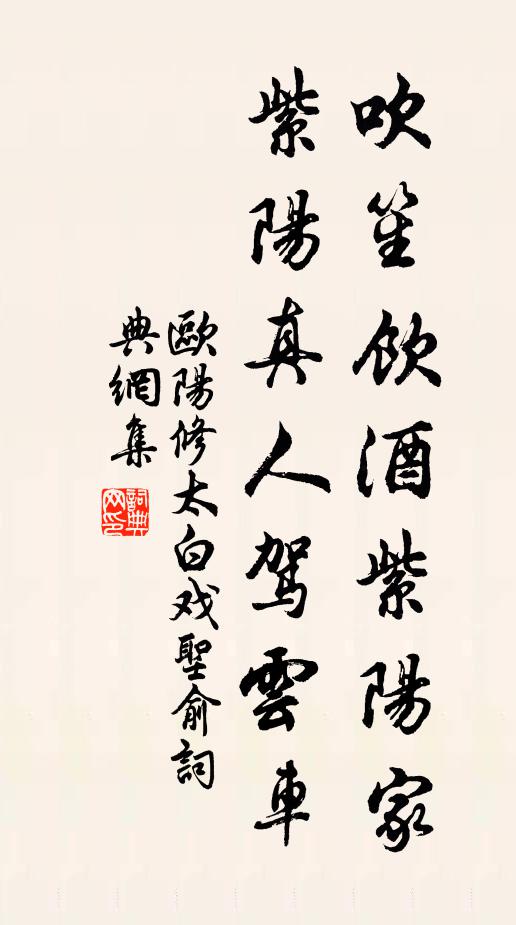 吹笙飲酒紫陽家
紫陽真人駕雲車
歐陽修太白戏聖俞詞
典網集
詞典网印